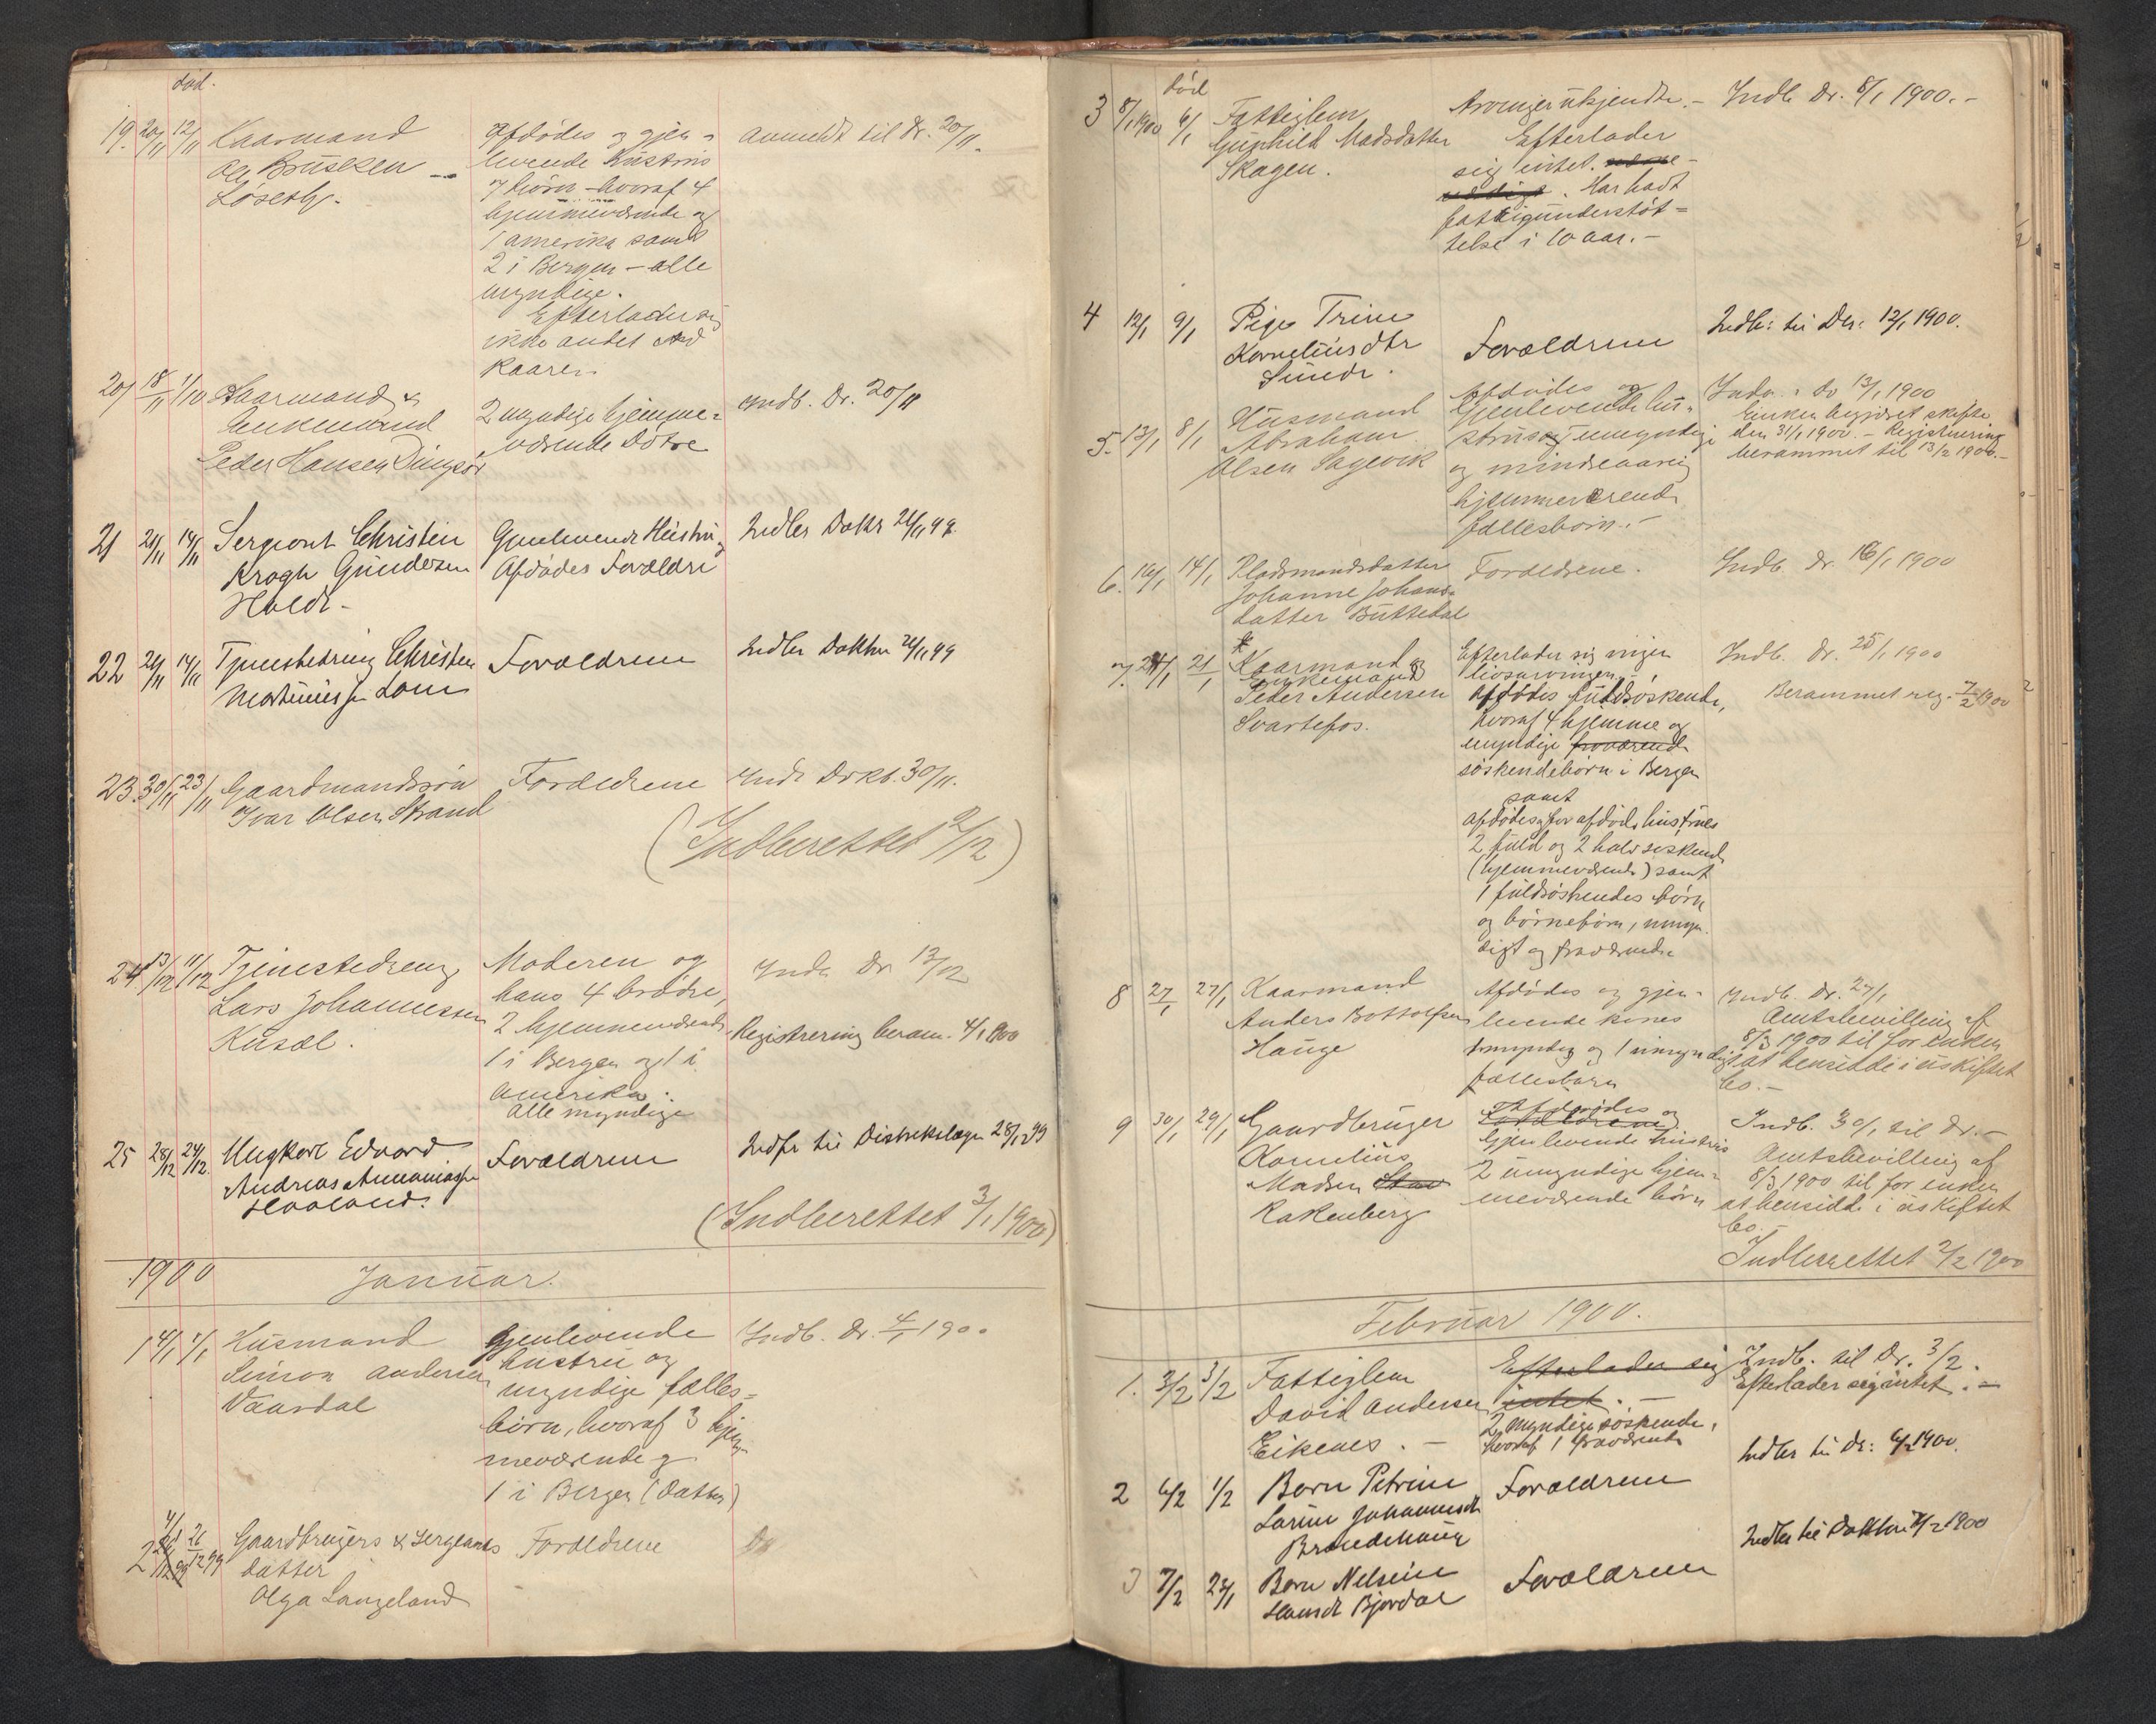 død.
19. 20/11 12/11 Kaarmand Afdødes og gjen- anmeldt til Dr. 20/11.
levende Hustrus
Løseth. 7 børn - hvoraf 4
hjemmeværende og
1 amerika samt
2 i Bergen - alle
myndige.
Efterlader sig
ikke andet end
Kaaren.
20/ 18/11 1/10 Kaarmand & 2 myndige hjemme- Indb. Dr. 20/11
Enkemand værende Døtre
Peder Hansen Dingsør
21 21/11 14/11 Sergeant Christen Gjenlevende Hustru og Indber Doktr 21/11 99.
Krogh Gundersen Afdødes Forældre
22 21/11 14/11 Tjenestedreng Christen Forældrene Indber Doktor 21/11 99
23. 30/11 23/11 Gaardmandssøn Forældrene Indb Dokt. 30/11.
Ivar Olsen Strand
(Indberettet 2/12)
24 13/12 11/12 Tjenestedreng Moderen og Indb Dr 13/12
Lars Johannessen hans 4 brødre,
2 hjemmeværende Registrering beram. 4/1 1900
1 i Bergen og 1 i
Amerika.
alle myndige
25 28/12 24/12 Ungkarl Edvard Forældrene Indber til Distriktslægen 28/12 99
Andreas Ananiassen
Haaland.
(Indberettet 3/1 1900)
1900 Januar.
1 4/1 1/1 Husmand Gjenlevende Indb. Dr. 4/1 1900
Simon Andersen hustru og
Vaardal myndige fælles-
børn, hvoraf 3 hjem-
meværende og
1 i Bergen (Datter)
2 4/1 26/12 99 Gaardbrugers & Sergeants Forældrene Do
datter
Olga Langeland
død
3 8/1 1900 6/1 Fattiglem Arvinger ukjendte. - Indb Dr. 8/1 1900. -
Gunhild Madsdatter Efterlader
Skagen. sig intet.
Har hadt
fattigunderstøt-
telse i 10 aar. -
4 12/1 9/1 Pige Trine Forældrene Indb: til Dr: 12/1 1900.
Kornelius dtr
Sunde.
5. 13/1 8/1 Husmand Afdødes og Indb. Dr 13/1 1900
Abraham gjenlevende hu- Enken begjæret skifte
Olsen Sagevik strus umyndige den 31/1 1900. - Registrering
og mindreaarig berammet til 13/2 1900. -
hjemmeværende
fællesbørn. -
6. 16/1 14/1 Pladsmandsdatter Forældrene. Indb. Dr. 16/1 1900
Johanne Johans-
datter Buttedal
7. 24/1 21/1 Kaarmand og Efterlader sig ingen Indb. Dr. 25/1 1900
Enkemand livsarvinger. -
Peder Andersen Afdødes fuldsøskende, Berammet reg. 7/2 1900
Svartefos. hvoraf 4 hjemme og
myndige fraværende
søskendebørn i Bergen
samt
afdødes før afdøde hustrues
2 fuld og 2 halvsøskende
(hjemmeværende) samt
1 fuldsøskendes børn
og børnebørn, umyn-
digt og fraværende
8 27/1 27/1 Kaarmand Afdødes og gjen- Indb. Dr. 27/1
Anders Bottolfsen levende kones Amtsbevilling af
Hauge myndig og 1 umyndigt 8/3 1900 til for enken
fællesbarn at hensidde i uskiftet
bo. -
9 30/1 29/1 Gaardbruger Afdødes og Indb. 30/1 til Dr. -
Kornelius gjenlevende hustrus Amtsbevilling af
Madsen 2 umyndige hjem- 8/3 1900 til for enken
Rakenberg meværende børn at hensidde i uskiftet
bo. -
Indberettet 2/2 1900
Februar 1900.
1. 3/2 3/2 Fattiglem Efterlader sig Indb. til Dr. 3/2.
David Andersen intet. - Efterlader sig intet. -
Eikenes. - 2 myndige søskende,
hvoraf 1 fraværende
2 6/2 1/2 Barn Petrine Forældrene Indber til Dr: 6/2 1900.
Larine Johannesdt
3 7/2 23/1 Barn Nelsine Forældrene Indber til Doktor 7/2 1900
Hansdt Bjordal